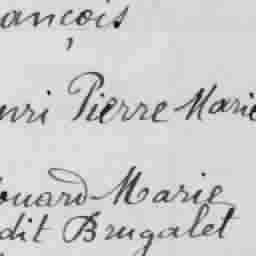 ançois
nri Pierre Marie
ouard Marie
dit Brugalet